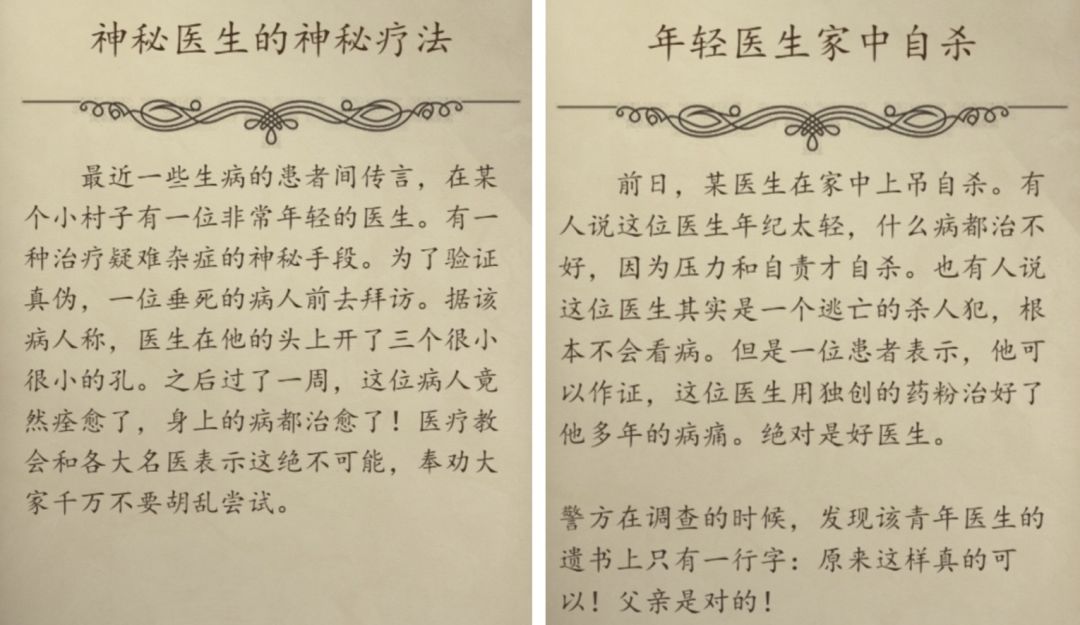 神秘医生的神秘疗法
最近一些生病的患者间传言，在某
个小村子有一位非常年轻的医生。有一
种治疗疑难杂症的神秘手段。为了验证
真伪，一位垂死的病人前去拜访。据该
病人称，医生在他的头上开了三个很小
很小的孔。之后过了一周，这位病人竟
然痊愈了，身上的病都治愈了！医疗教
会和各大名医表示这绝不可能，奉劝大
家千万不要胡乱尝试。
年轻医生家中自杀
前日，某医生在家中上吊自杀。有
人说这位医生年纪太轻，什么病都治不
好，因为压力和自责才自杀。也有人说
这位医生其实是一个逃亡的杀人犯，根
本不会看病。但是一位患者表示，他可
以作证，这位医生用独创的药粉治好了
他多年的病痛。绝对是好医生。
警方在调查的时候，发现该青年医生的
遗书上只有一行字：原来这样真的可
以！父亲是对的！